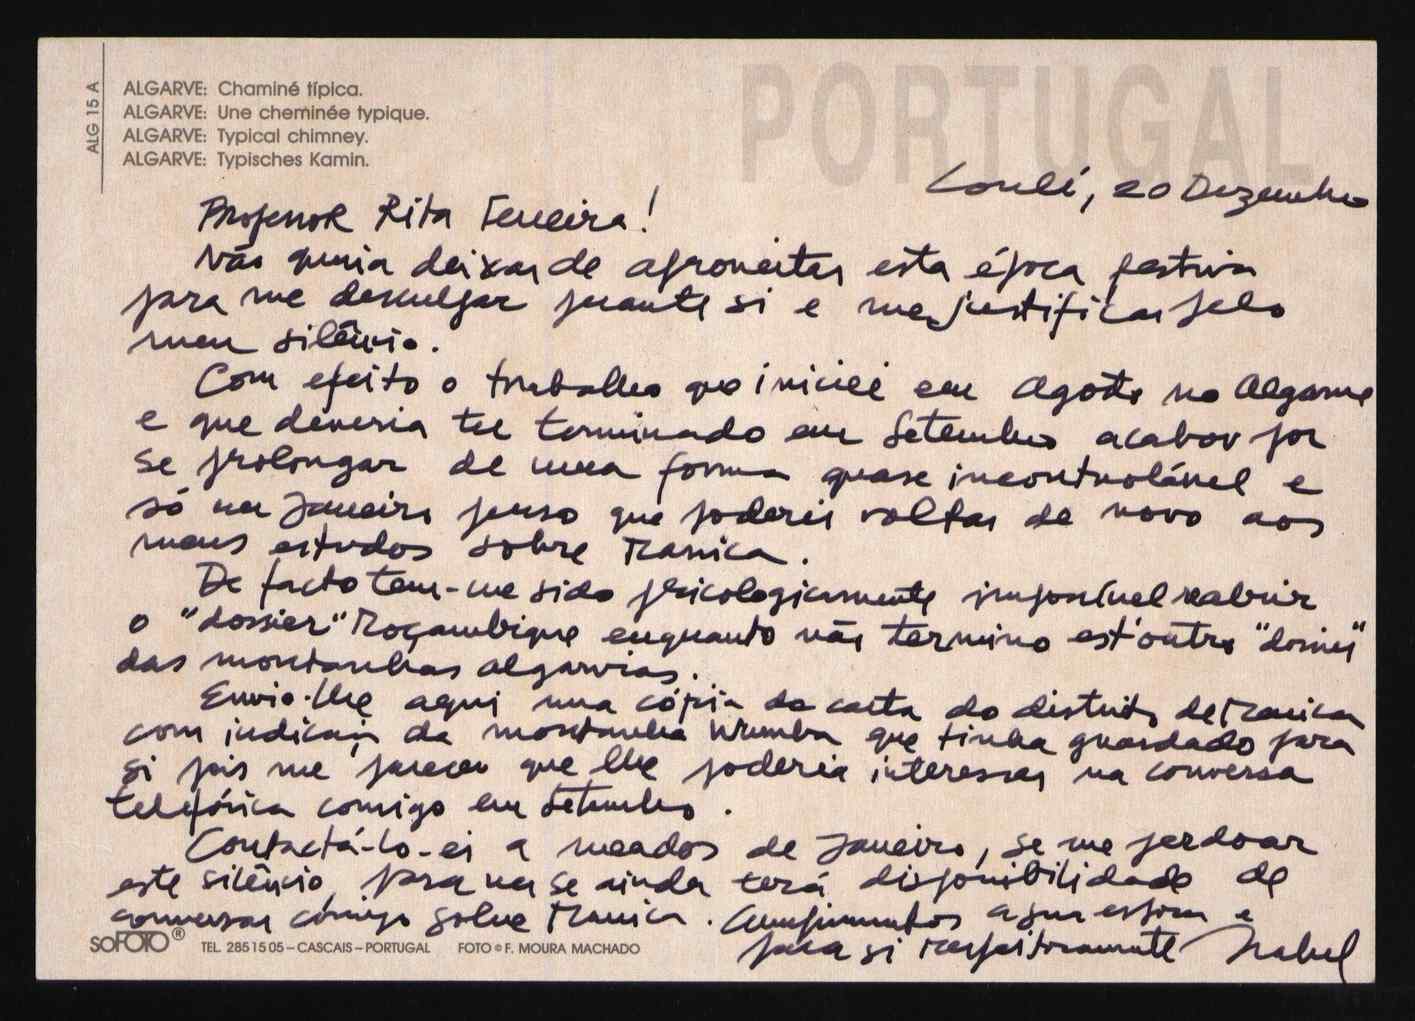 ALG 15 A
ALGARVE: Chaminé típica.
ALGARVE: Une cheminée typique.
ALGARVE: Typical chimney.
ALGARVE: Typisches Kamin.
PORTUGAL
Loulé, 20 Dezembro
Professor Rita Ferreira!
Não queria deixar de aproveitar esta época festiva
para me desculpar perante si e me justificar pelo
meu silêncio.
Com efeito o trabalho que iniciei em Agosto no Algarve
e que deveria ter terminado em Setembro acabou por
se prolongar de uma forma quase incontrolável e
só em Janeiro penso que poderei voltar de novo aos
meus estudos sobre Manica.
De facto tem-me sido psicologicamente impossível reabrir
o "dossier" Moçambique enquanto não termino est'outro "dossier"
das montanhas algarvias.
Envio-lhe aqui uma cópia da carta do distrito de Manica
com indicação da montanha que tinha guardado para
si pois me pareceu que lhe poderia interessar na conversa
telefónica comigo em Setembro.
Contactá-lo-ei a meados de Janeiro, se me perdoar
este silêncio, para ver se ainda terá disponibilidade de
conversar comigo sobre Manica. Cumprimentos a sua esposa e
para si respeitosamente Isabel
soFOTO®
TEL. 2851505 – CASCAIS – PORTUGAL FOTO © F. MOURA MACHADO